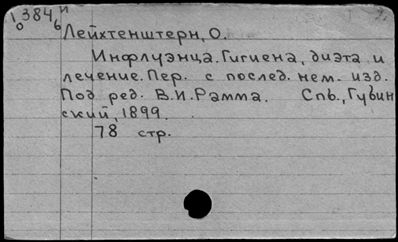 1384 и
0 6
Лейхтенштерн, О.
Инфлуэнца. Гигиена, диэта и
лечение. Пер. с послед. нем. изд.
Под ред. В.И. Рамма. Спб., Губин
ский, 1899.
78 стр.